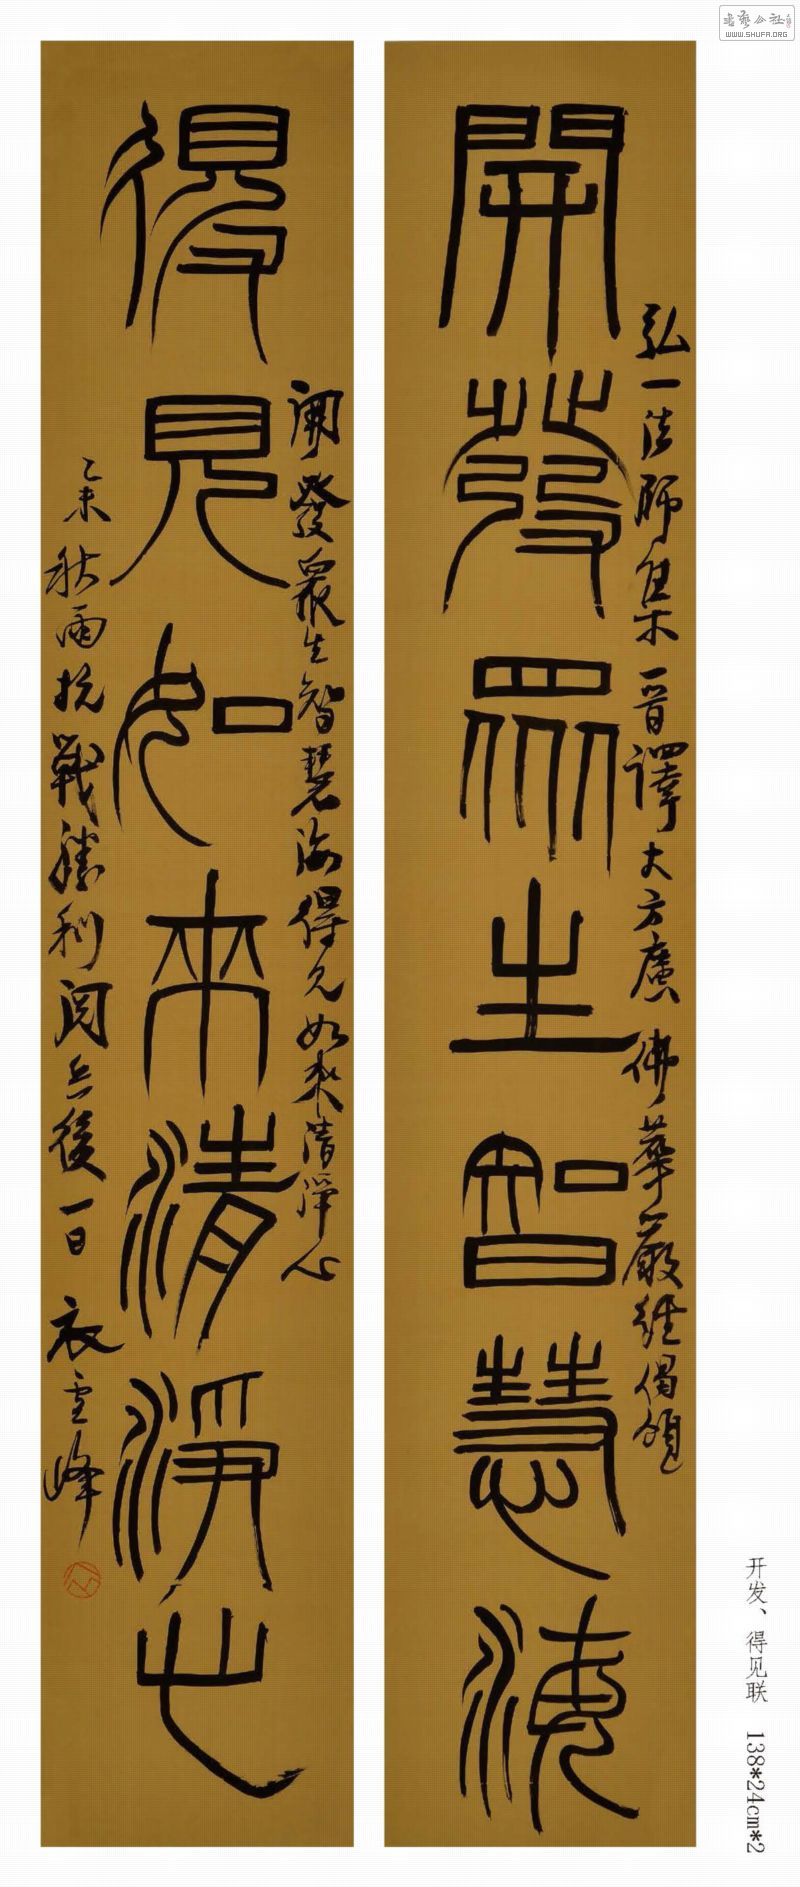 開發眾生智慧海
弘一法師集晉譯大方廣佛華嚴經偈頌
得見如來清淨心
開發眾生智慧海得見如來清淨心
乙未秋雨抗戰勝利閱兵後一日衣雪峰
开发、得见联 138*24cm*2
书艺公社
WWW.SHUFA.ORG